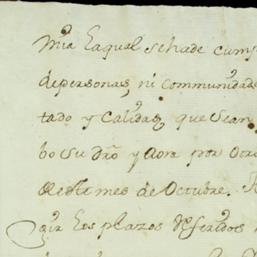 mia Laqual se hade cum
depersonas, ni communidade
tado y Calidad, que Sean
bo su dro y Aora por otro
de este mes de Octubre.
gir los plazos referidos